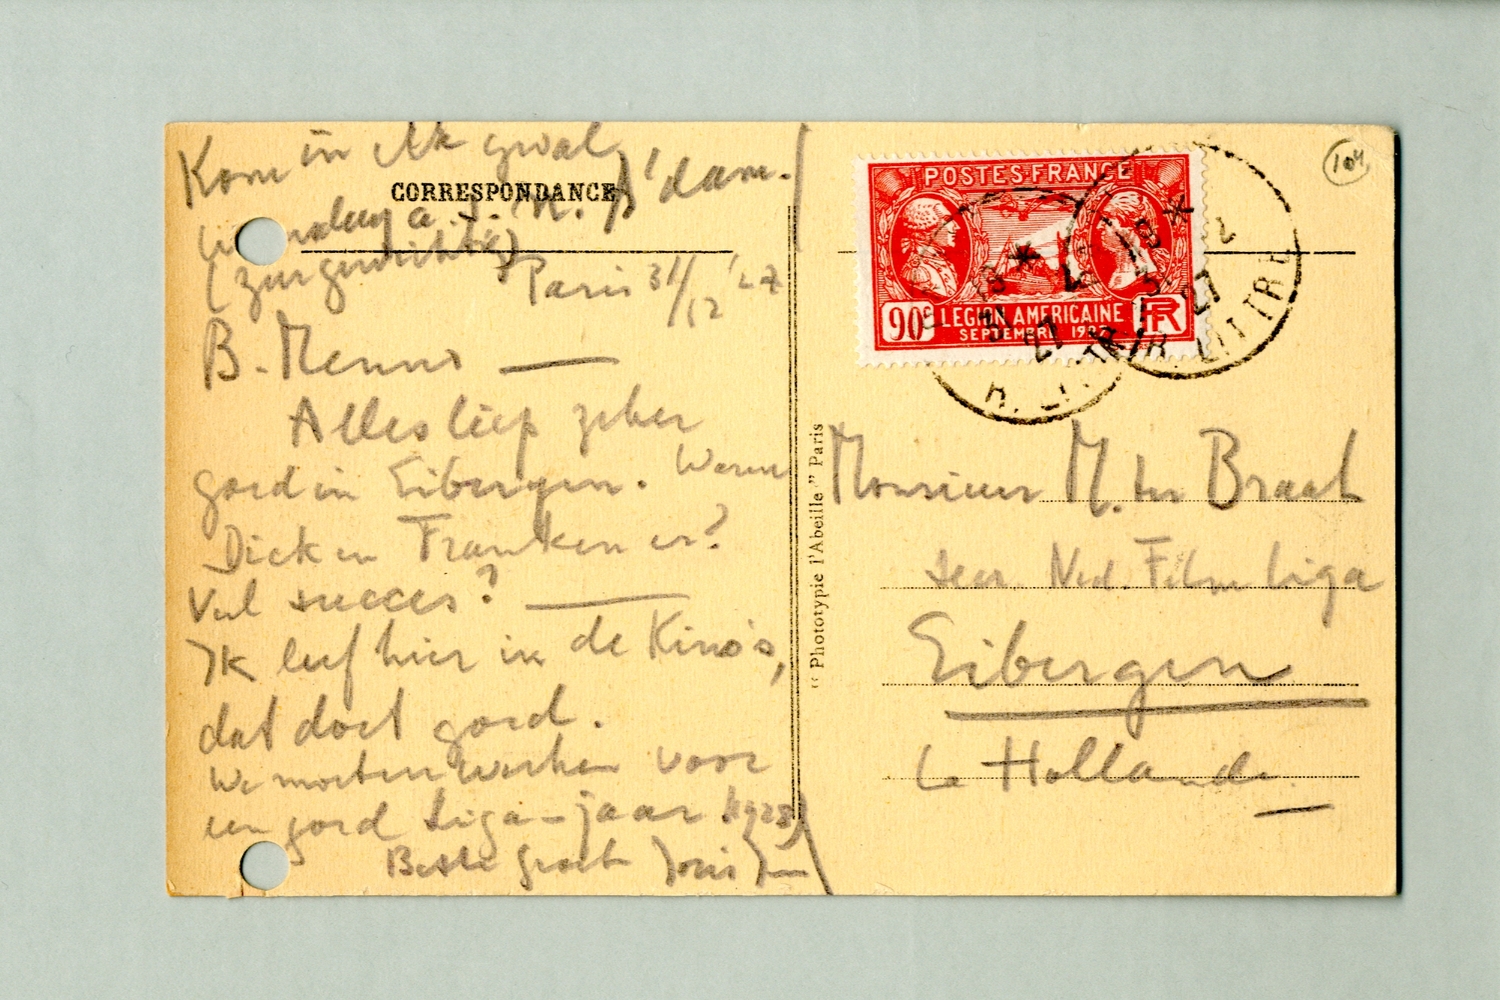 Kom in elk geval
CORRESPONDANCE
a.s. in A'dam.
Paris 31/12 '27
B. Menno —
Alles liep zeker
goed in Eibergen. Waren
Dick en Franken er?
Veel succes? —
Ik leef hier in de Kino's,
dat doet goed.
We moeten werken voor
een goed Liga-jaar (1928)
Beste groet Joris
"Phototypie l'Abeille" Paris
POSTES-FRANCE
90c LEGION AMERICAINE
SEPTEMBRE 1927
RF
R. LITTRE
104
Monsieur M. ter Braak
secr. Ned. Film Liga
Eibergen
La Hollande.